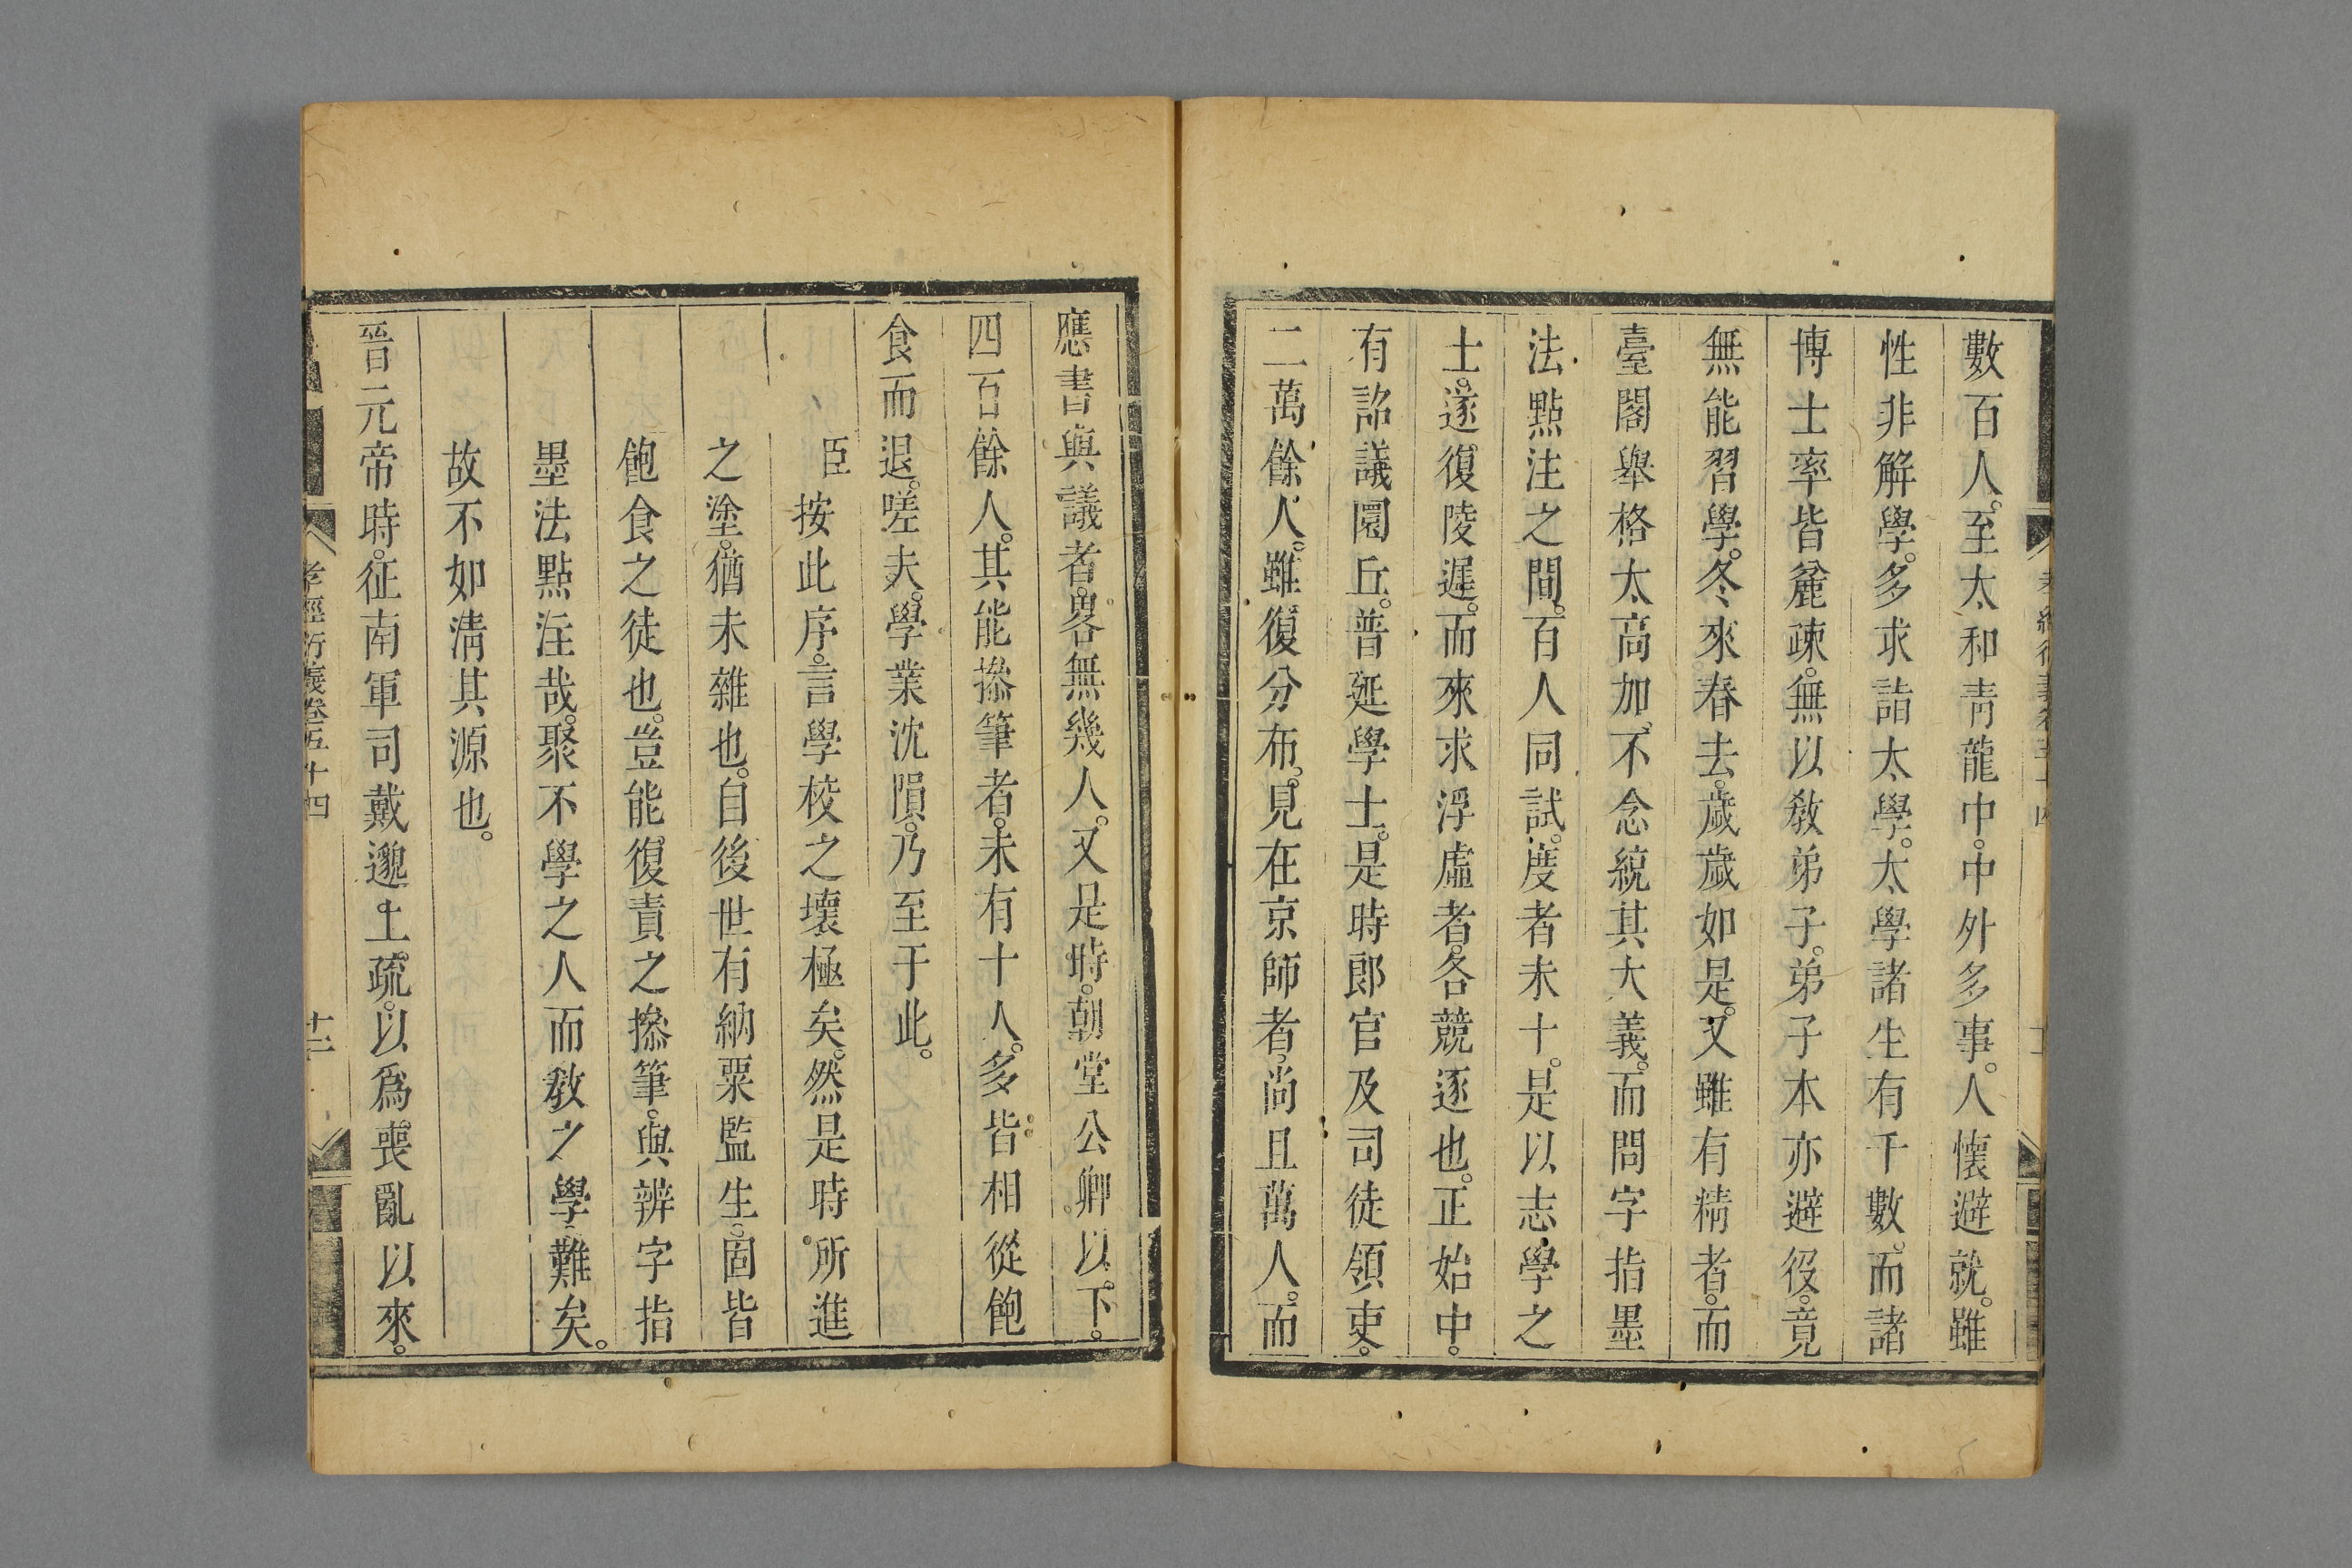 數百人。至太和青龍中。中外多事。人懷避就。雖
性非解學。多求詣太學。太學諸生有千數。而諸
博士率皆麄疎。無以敎弟子。弟子本亦避役。竟
無能習學。冬來春去。歲歲如是。又雖有精者。而
臺閣舉格太高。加不念統其大義。而問字指墨
法點注之間。百人同試。度者未十。是以志學之
士。遂復陵遲。而來求浮虛者。各競逐也。正始中。
有詔議圜丘。普延學士。是時郎官及司徒領吏。
二萬餘人。雖復分布。見在京師者。尚且萬人。而
應書與議者。畧無幾人。又是時。朝堂公卿以下。
四百餘人。其能操筆者。未有十人。多皆相從飽
食而退。嗟夫。學業沈隕。乃至于此。
臣按此序。言學校之壞極矣。然是時所進
之塗。猶未雜也。自後世有納粟監生。固皆
飽食之徒也。豈能復責之操筆。與辨字指
墨法點注哉。聚不學之人而敎之學。難矣。
故不如淸其源也。
晉元帝時。征南軍司戴邈上疏。以爲喪亂以來。
孝經衍義卷五十四
十二